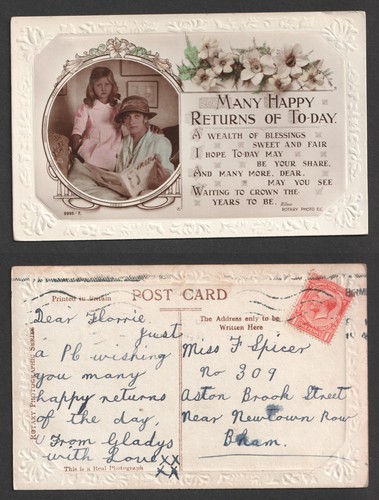 MANY HAPPY
RETURNS OF TO-DAY.
A WEALTH OF BLESSINGS
SWEET AND FAIR
I HOPE TO-DAY MAY
BE YOUR SHARE,
AND MANY MORE, DEAR,
MAY YOU SEE
WAITING TO CROWN THE
YEARS TO BE.
ROTARY PHOTO E.C.
Printed in Britain
POST CARD
ROTARY PHOTOGRAPHIC SERIES
The Address only to be
Written Here
Dear Florrie
just
a PC wishing
you many
happy returns
of the day,
From Gladys
with Love xx
xx
This is a Real Photograph
Miss F Spicer
No 309
Aston Brook Street
Near Newtown Row
Bham.